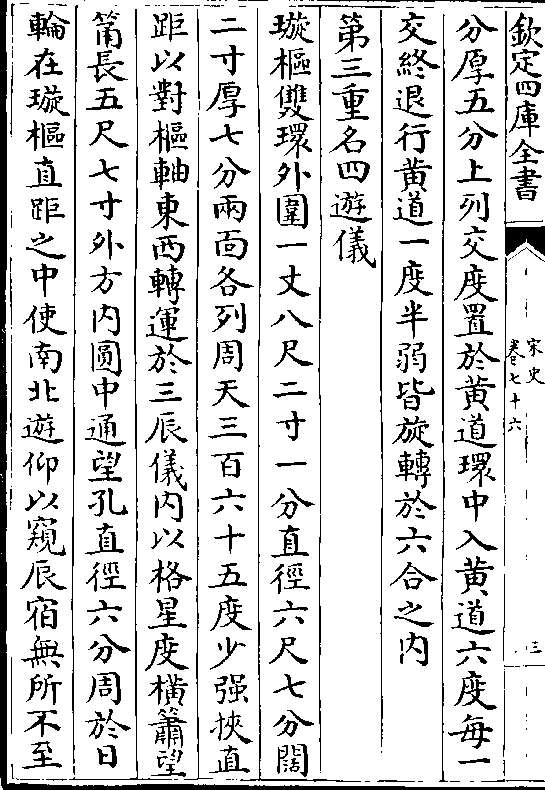 欽定四庫全書
宋史
卷七十六
三
分厚五分上列交度置於黄道環中入黄道六度每一
交終退行黄道一度半弱皆旋轉於六合之内
第三重名四遊儀
璇樞雙環外圍一丈八尺二寸一分直徑六尺七分闊
二寸厚七分兩面各列周天三百六十五度少强挾直
距以對樞軸東西轉運於三辰儀内以格星度横簫望
筩長五尺七寸外方内圓中通望孔直徑六分周於日
輪在璇樞直距之中使南北遊仰以窺辰宿無所不至